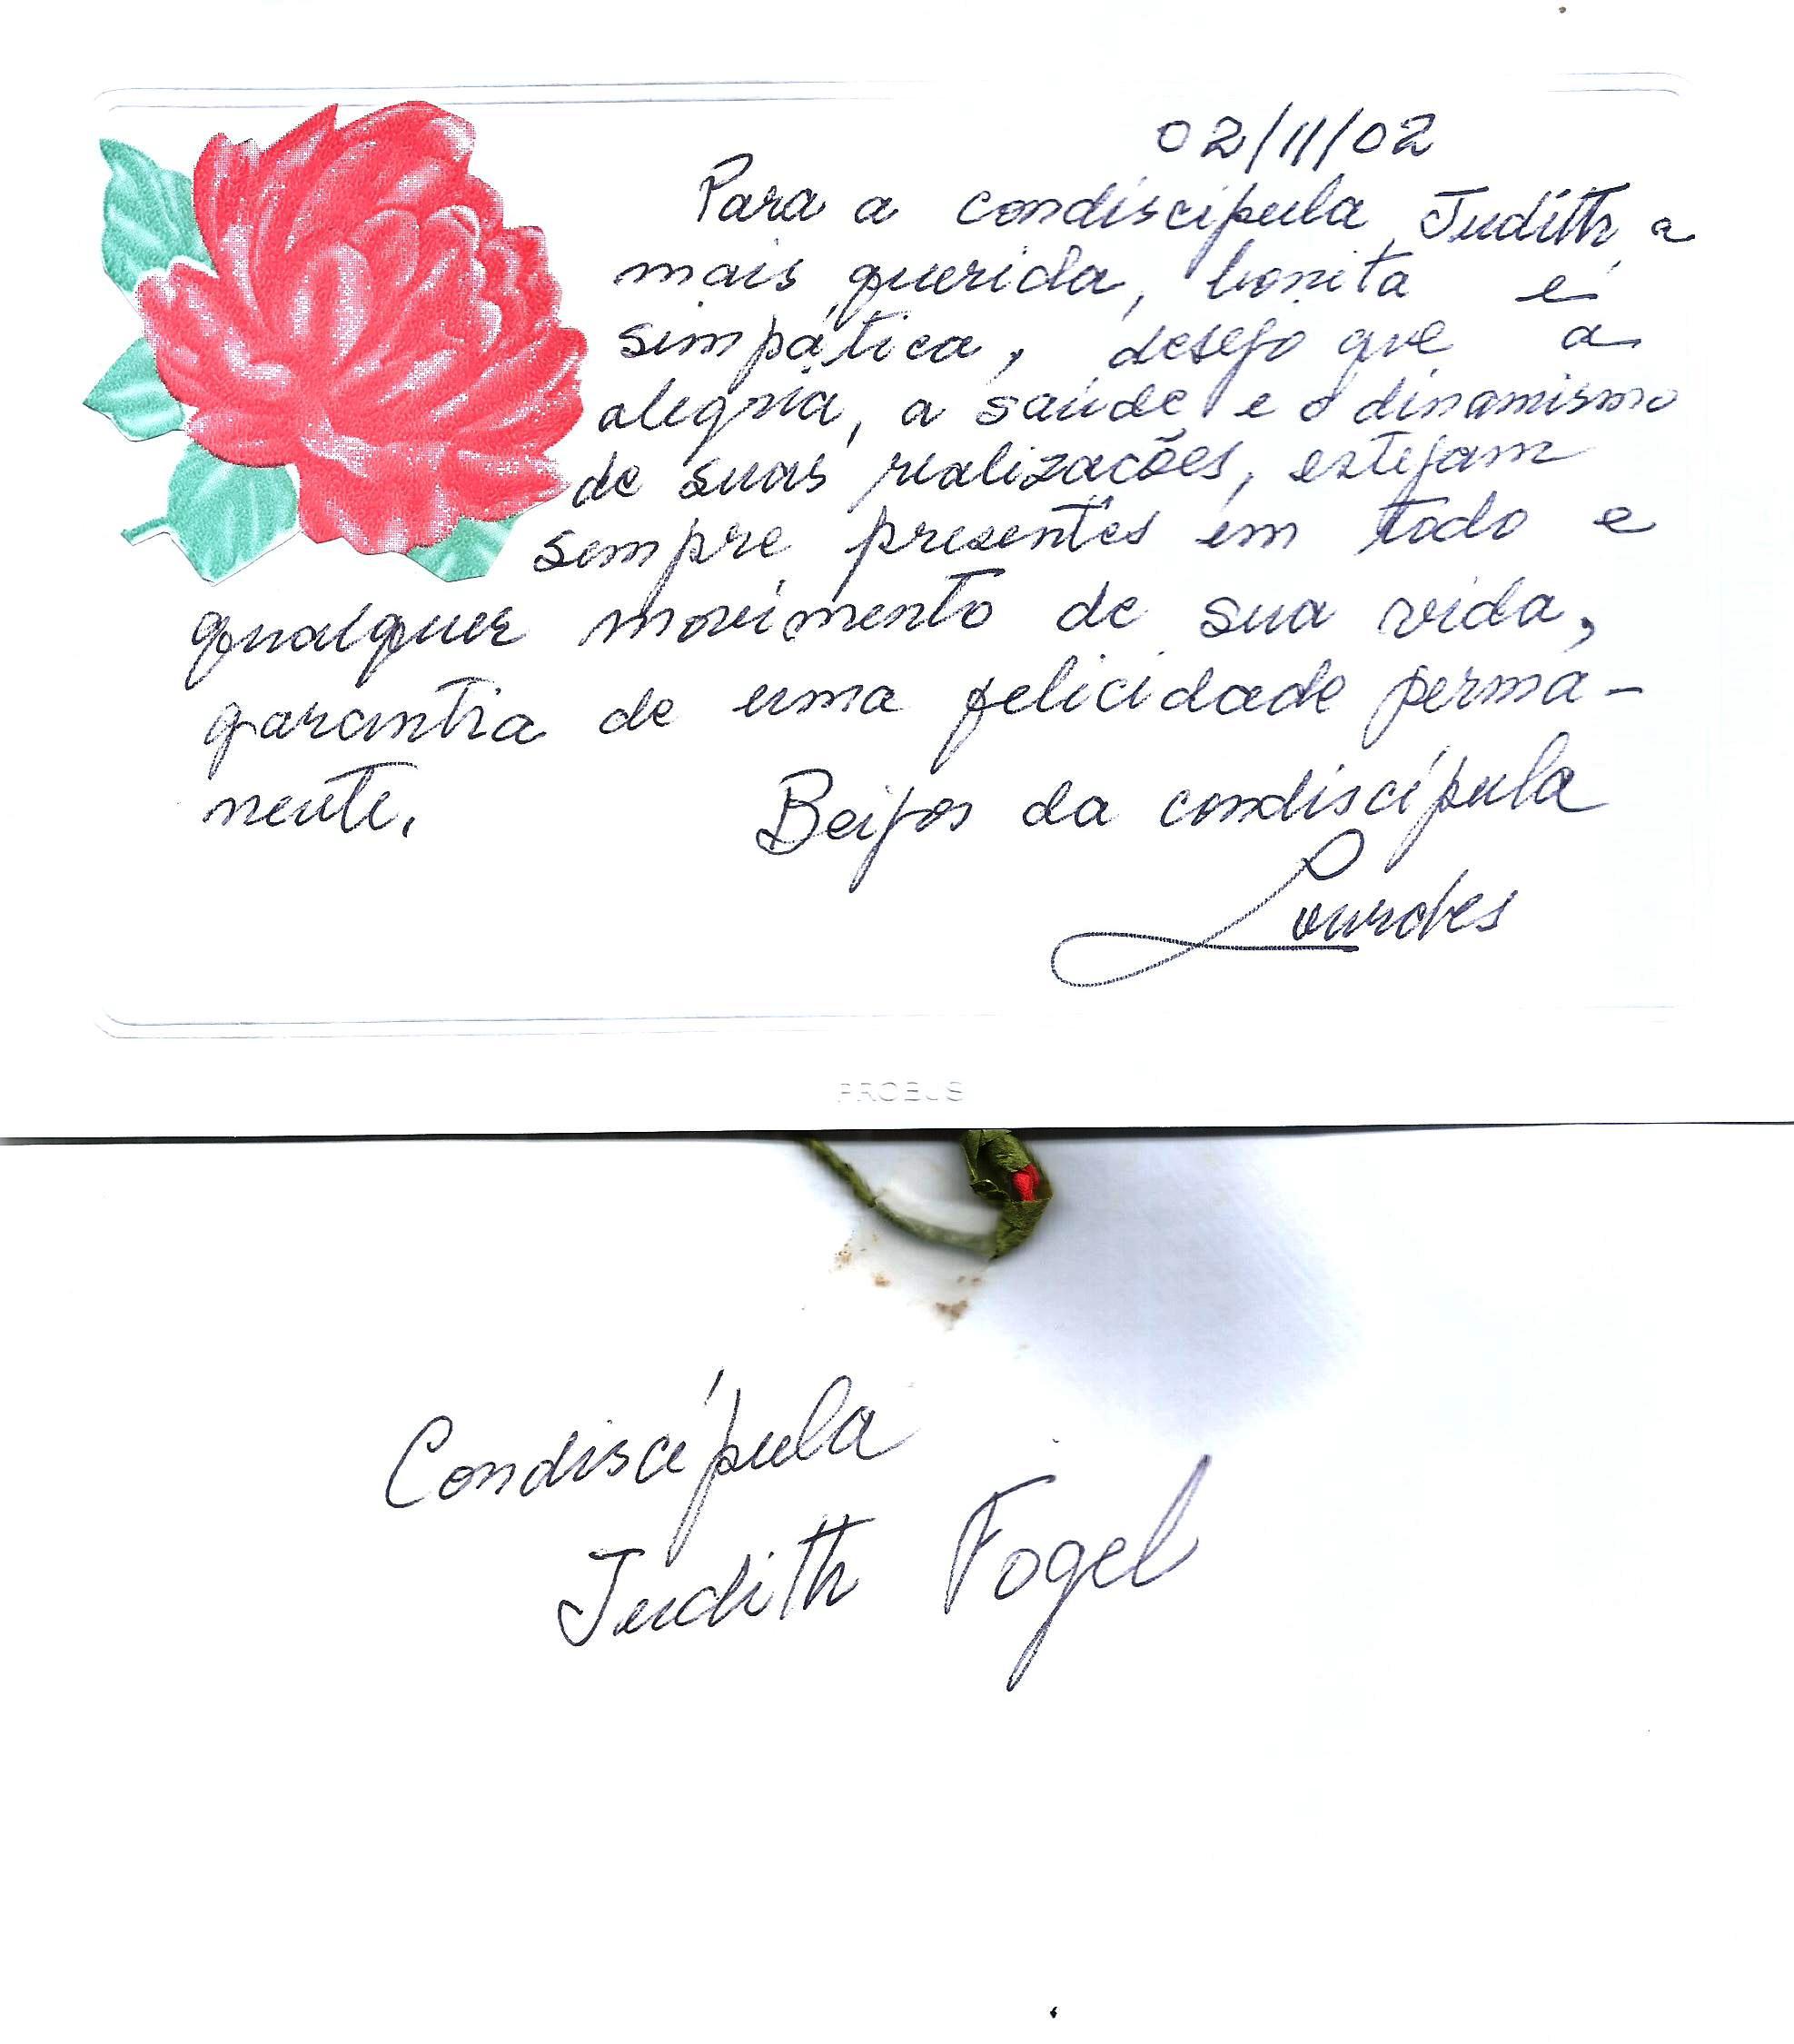 02/11/02
Para a condiscípula Judith, a
mais querida, bonita e
simpática, desejo que a
alegria, a saúde e o dinamismo
de suas realizacões, estejam
sempre presentes em todo e
qualquer movimento de sua vida,
garantia de uma felicidade perma-
nente.
Beijos da condiscípula
Lourdes
PROBUS
Condiscípula
Judith Fogel